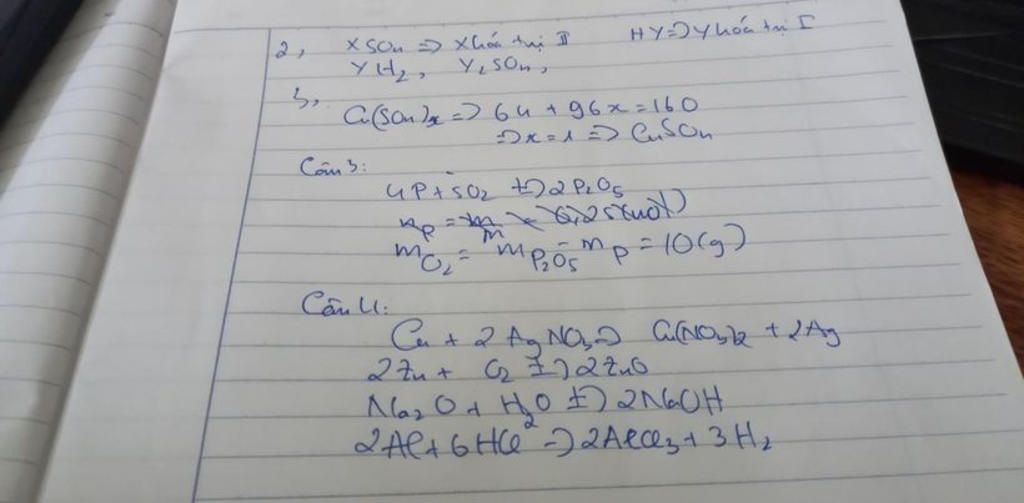 2, XSO4 => X hóa trị II HY => Y hóa trị I
YH2, Y2SO4,
3,
Cu(SO4)x => 64 + 96x = 160
=> x = 1 => CuSO4
Câu 3:
4P + 5O2 t→ 2P2O5
nP = m/M = 0,25 (mol)
mO2 = mP2O5 - mP = 10 (g)
Câu 4:
Cu + 2AgNO3 => Cu(NO3)2 + 2Ag
2Zn + O2 t→ 2ZnO
Na2O + H2O t→ 2NaOH
2Al + 6HCl → 2AlCl3 + 3H2